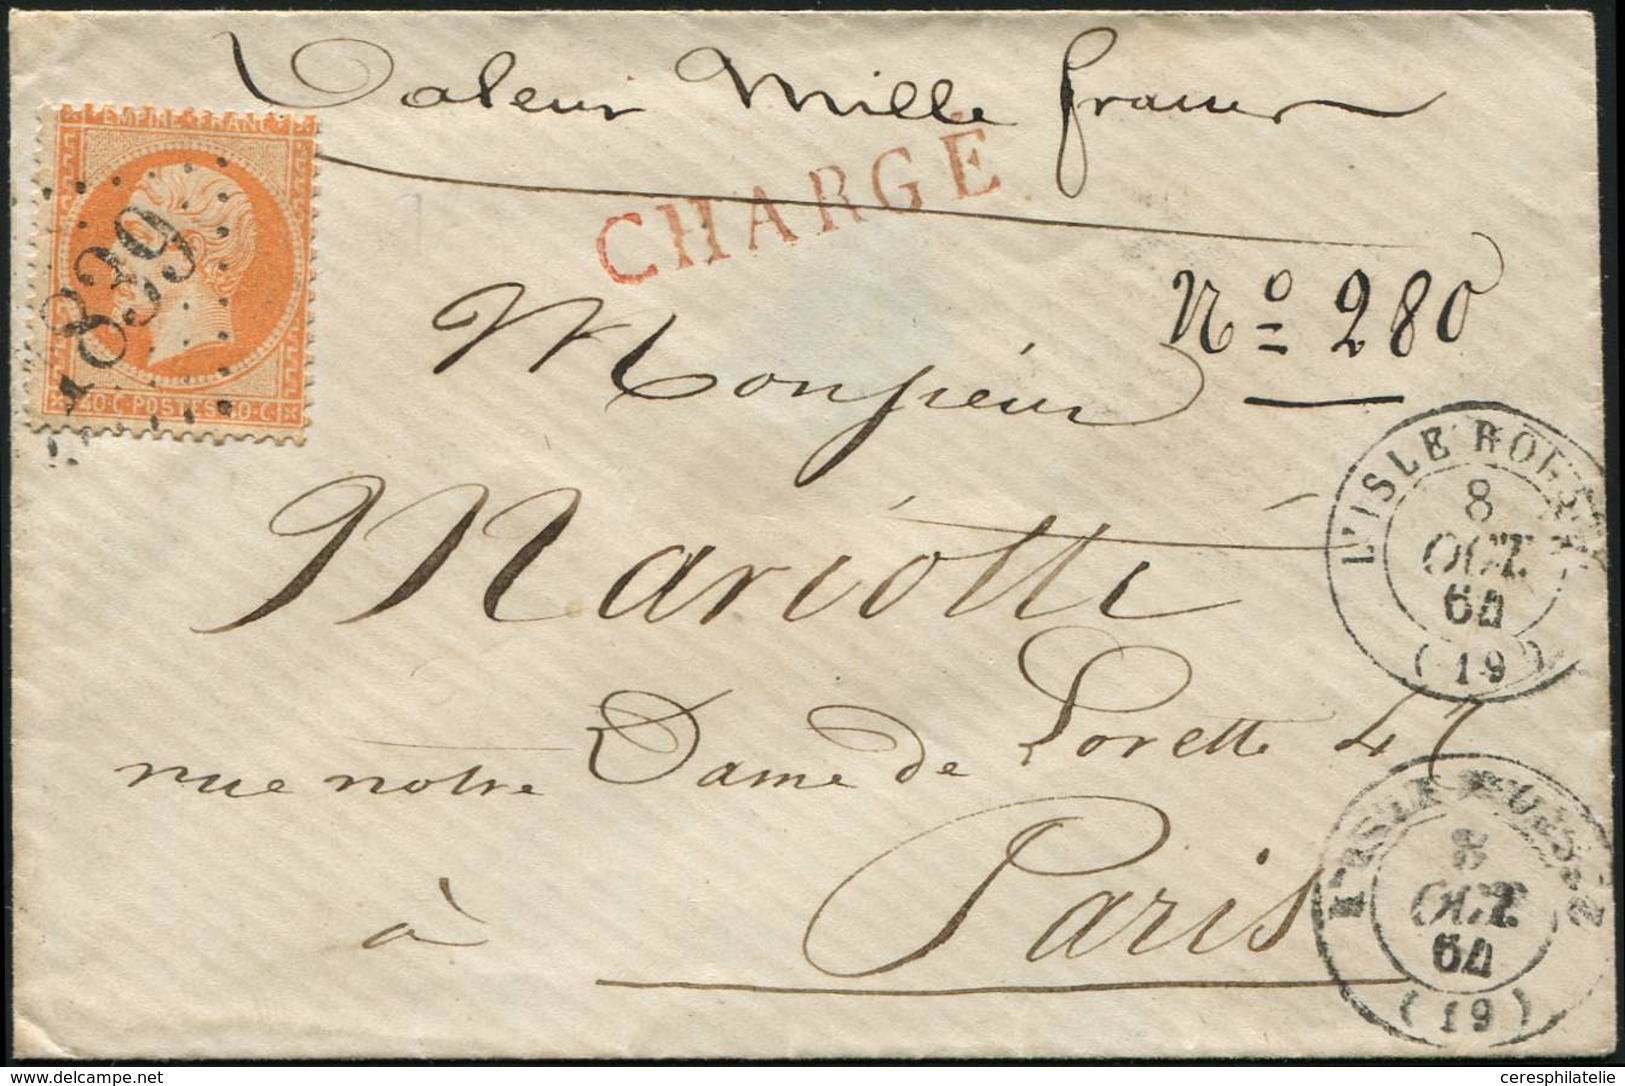 Valeur Mille francs
EMPIRE FRANC
1839
40·C POSTES 40·C
CHARGÉ
N° 280
Monsieur
Mariotti
rue notre Dame de Lorette 47
à Paris
L'ISLE ROUSSE
8
OCT.
64
(19)
L'ISLE ROUSSE
8
OCT.
64
(19)
www.delcampe.net
ceresphilatelie